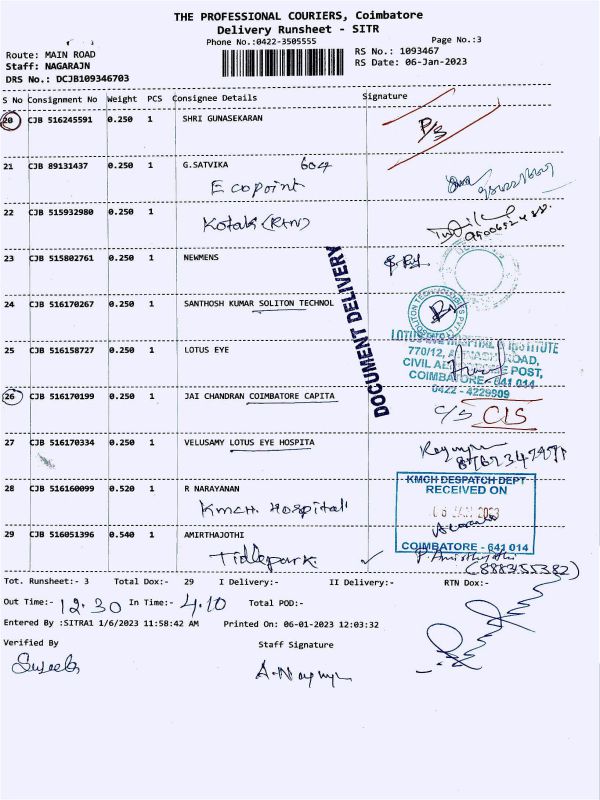 THE PROFESSIONAL COURIERS, Coimbatore
Delivery Runsheet - SITR
Phone No.:0422-3505555 Page No.:3
Route: MAIN ROAD RS No.: 1093467
Staff: NAGARAJN RS Date: 06-Jan-2023
DRS No.: DCJB109346703
S No Consignment No Weight PCS Consignee Details Signature
20 CJB 516245591 0.250 1 SHRI GUNASEKARAN P/S
21 CJB 89131437 0.250 1 G.SATVIKA 604
Ecopoint
22 CJB 515932980 0.250 1
Kotak (R+N)
23 CJB 515802761 0.250 1 NEWMENS
DOCUMENT DELIVERY
24 CJB 516170267 0.250 1 SANTHOSH KUMAR SOLITON TECHNOL
25 CJB 516158727 0.250 1 LOTUS EYE
LOTUS EYE HOSPITAL & INSTITUTE
770/12, AVINASHI ROAD,
CIVIL AERODROME POST,
COIMBATORE - 641 014
0422 - 4229909
26 CJB 516170199 0.250 1 JAI CHANDRAN COIMBATORE CAPITA C/S CIS
27 CJB 516170334 0.250 1 VELUSAMY LOTUS EYE HOSPITA
28 CJB 516160099 0.520 1 R NARAYANAN
KMCH Hospital
KMCH DESPATCH DEPT
RECEIVED ON
06 JAN 2023
COIMBATORE - 641 014
29 CJB 516051396 0.540 1 AMIRTHAJOTHI
Tidlepark
(8883155382)
Tot. Runsheet:- 3 Total Dox:- 29 I Delivery:- II Delivery:- RTN Dox:-
Out Time:- 12.30 In Time:- 4.10 Total POD:-
Entered By :SITRA1 1/6/2023 11:58:42 AM Printed On: 06-01-2023 12:03:32
Verified By Staff Signature
Suseela